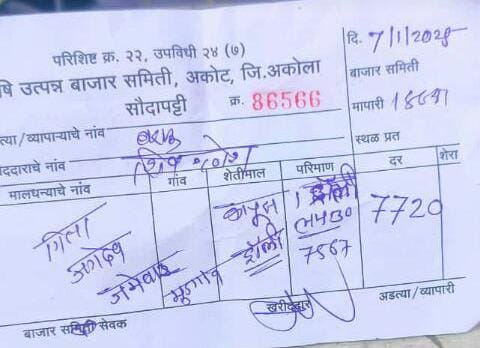 परिशिष्ट क्र. २२, उपविधी २४ (७)
दि. 7/1/2025
षि उत्पन्न बाजार समिती, अकोट, जि.अकोला
बाजार समिती
सौदापट्टी
क्र. 86566
मापारी
त्या/व्यापाऱ्याचे नांव
स्थळ प्रत
ददाराचे नांव
मालधन्याचे नांव
गांव
शेतीमाल
परिमाण
दर
शेरा
गिता
कापूस
1 ट्रॉली
7720
ट्रॉली
7567
बाजार समिती सेवक
खरीददार
अडत्या/व्यापारी